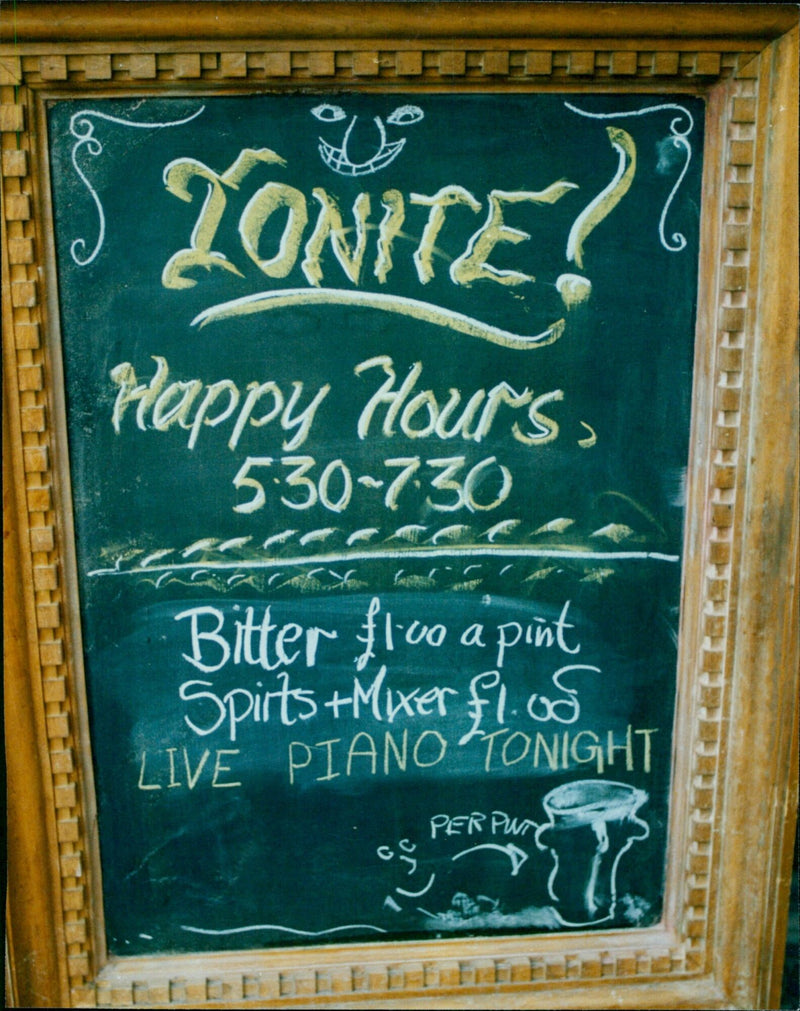 TONITE!
Happy Hours,
5·30~7·30
Bitter £1·00 a pint
Spirts+Mixer £1.00
LIVE PIANO TONIGHT
PER PINT